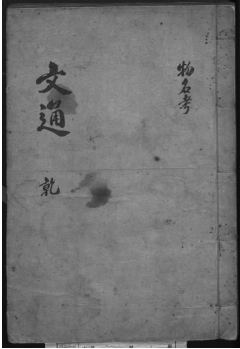 物名考
交通
乾